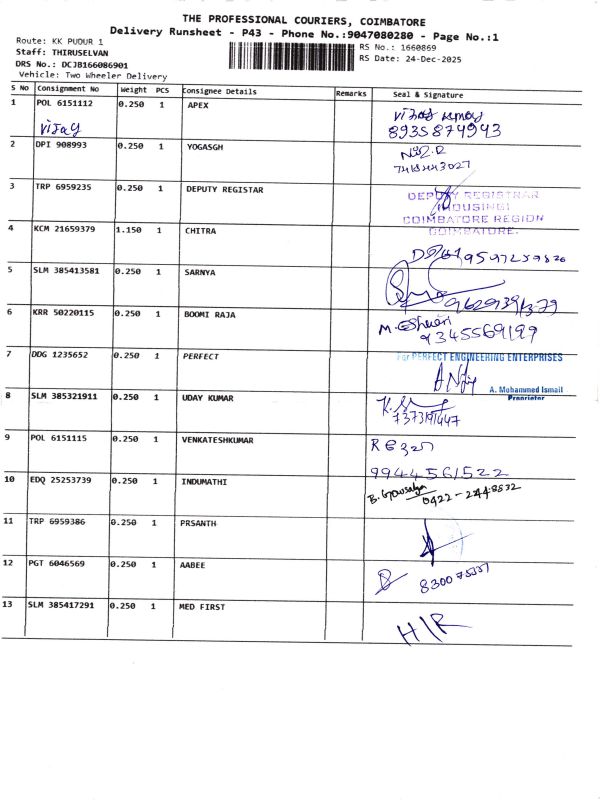 THE PROFESSIONAL COURIERS, COIMBATORE
Delivery Runsheet - P43 - Phone No.:9047080280 - Page No.:1
Route: KK PUDUR 1
RS No.: 1660869
Staff: THIRUSELVAN
RS Date: 24-Dec-2025
DRS No.: DCJB166086901
Vehicle: Two Wheeler Delivery
S No Consignment No Weight PCS Consignee Details Remarks Seal & Signature
1 POL 6151112 0.250 1 APEX
Vijay
8935874943
2 DPI 908993 0.250 1 YOGASGH
3 TRP 6959235 0.250 1 DEPUTY REGISTAR
DEPUTY REGISTRAR
(HOUSING)
COIMBATORE REGION
COIMBATORE.
4 KCM 21659379 1.150 1 CHITRA
5 SLM 385413581 0.250 1 SARNYA
6 KRR 50220115 0.250 1 BOOMI RAJA
M. Eshwari
9345569199
7 DDG 1235652 0.250 1 PERFECT
For PERFECT ENGINEERING ENTERPRISES
A. Mohammed Ismail
Proprietor
8 SLM 385321911 0.250 1 UDAY KUMAR
7373191447
9 POL 6151115 0.250 1 VENKATESHKUMAR
9944561522
10 EDQ 25253739 0.250 1 INDUMATHI
11 TRP 6959386 0.250 1 PRSANTH
12 PGT 6046569 0.250 1 AABEE
13 SLM 385417291 0.250 1 MED FIRST
H/R